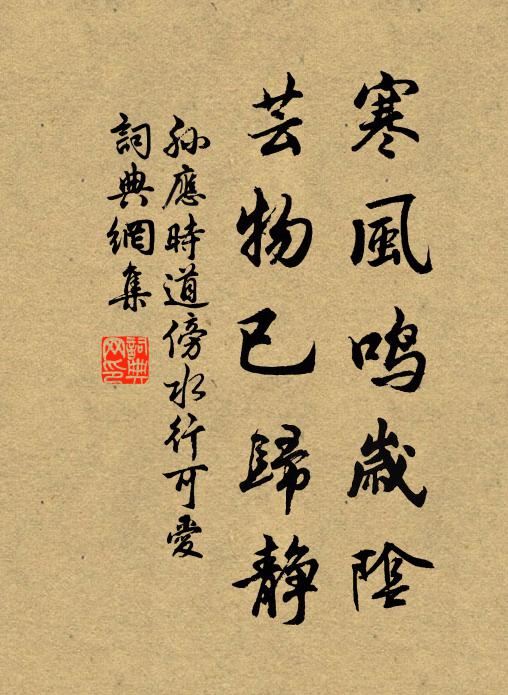 寒風鳴歲陰
芸物已歸静
孫應時道傍水行可愛
詞典網集
詞典
网印